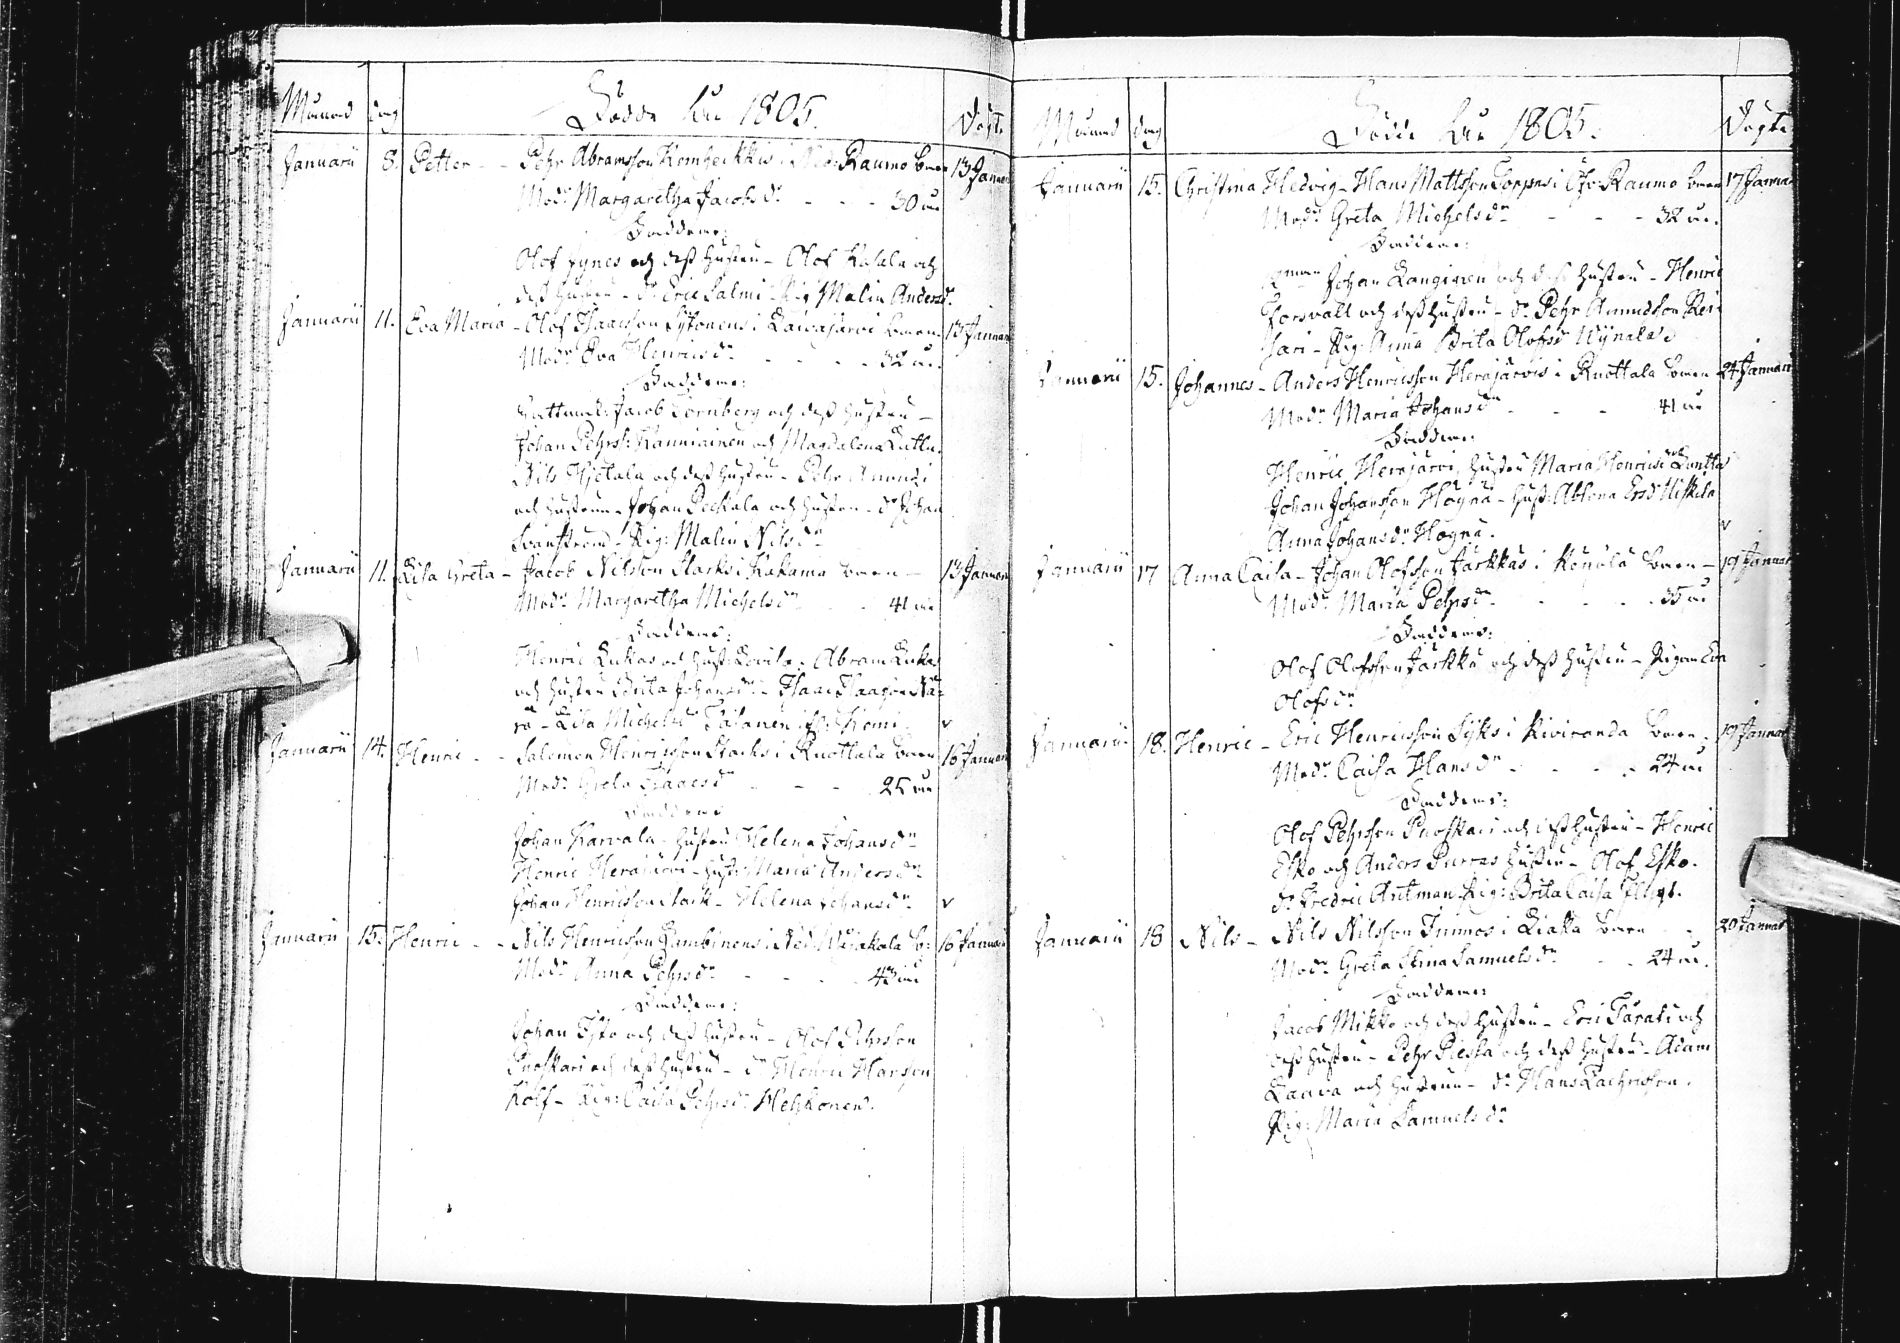 Månad dag Födde åhr 1805. Dagen
Januarii 8. Petter - - Pehr Abramsson Kemheikkis i Ned: Raumo barn 13 Januar
Modr Margaretha Jacobsdr - - - 30 år
Faddrar:
Olof Fynes och dess hustru - Olof Kalala och
dess hustru - dr Eric Salmi - Pig: Malin Andersdr.
Januarii 11. Eva Maria - Olof Isaacsson Sytonens i Laivajärvi barn - 13 Januar
Modr Eva Henricsdr - - - 32 år.
Faddrar:
Jacob Törnberg och dess hustru -
Johan Pehrss: Kanniainen och Magdalena
Nils Hjetala och dess hustru - Pehr Anundi
och hustrun - Johan Peckala och hustru - dr Johan
Svanström - Pig: Malin Nilsdr
Januarii 11. Lisa Greta - Jacob Nilsson Starks i Kakama barn - 13 Januar
Modr Margaretha Michelsdr - - 41 år
Faddrar:
Henric Lukas och hust: Lovisa - Abram Lukas
och hustru Brita Johansdr - Isaac Isacsson
- Lisa Michelsdr Kemi. v
Januarii 14. Henric - - Salomon Henricsson Starks i Knottala barn 16 Januar
Modr Greta Isaacsdr - - - 25 år
Faddrar
Johan Karvala - hustru Helena Johansdr
Henric Herajärvi - hust: Maria Andersdr
Johan Henricsson Stark - Helena Johansdr v
Januarii 15. Henric - - Nils Henricsson Lambinens i Ned: Wojakala b: 16 Januarii
Modr Anna Pehrsdr - - - 43 år
Faddrar:
Johan Esko och dess hustru - Olof Pehrsson
Puoskari och dess hustru - dr Henric Hansson
Kolf - Pig: Caisa Pehrsdr Hehkonen.
Månad dag Födde åhr 1805. Dagen
Januarii 15. Christina Hedvig - Hans Mattsson Loppas i Öfr: Raumo barn 17 Januar
Modr Greta Michelsdr - - - 32 år.
Faddrar:
Johan Kangainen och dess hustru - Henric
Forsvall och dess hustru - dr Pehr Anundsson
Pig: Anna Brita Olofsdr
Januarii 15. Johannes - Anders Henricsson Herajärvis i Knottala barn 24 Januarii
Modr Maria Johansdr - - - 41 år
Faddrar:
Henric Herajärvi, hustru Maria Henricsdr
Johan Johansson Hogna - hust: Ablona Ersdr
Anna Johansdr Hogna. v
Januarii 17 Anna Caisa - Johan Olofsson Jurkkas i Könölä barn - 19 Januar
Modr Maria Pehrsdr - - - 35 år
Faddrar:
Olof Olofsson Jurkka och dess hustru - Pigan Eva
Olofsdr
Januarii 18. Henric - Eric Henricsson Syks i Kiviranda barn - 19 Januar
Modr Caisa Hansdr - - - 24 år
Faddrar:
Olof Pehrsson Puoskari och dess hustru - Henric
Esko och Anders Purras hustru - Olof Esko.
dr Fredric Antman - Pig: Brita Caisa
Januarii 18 Nils - Nils Nilsson Inmos i Liakka barn - - 20 Januar
Modr Greta Stina Samuelsdr - - 24 år.
Faddrar:
Jacob Mikko och dess hustru - Eric och
dess hustru - Pehr Pieska och dess hustru - Adam
Laava och hustrun - dr Hans Zachrisson.
Pig: Maria Samuelsdr